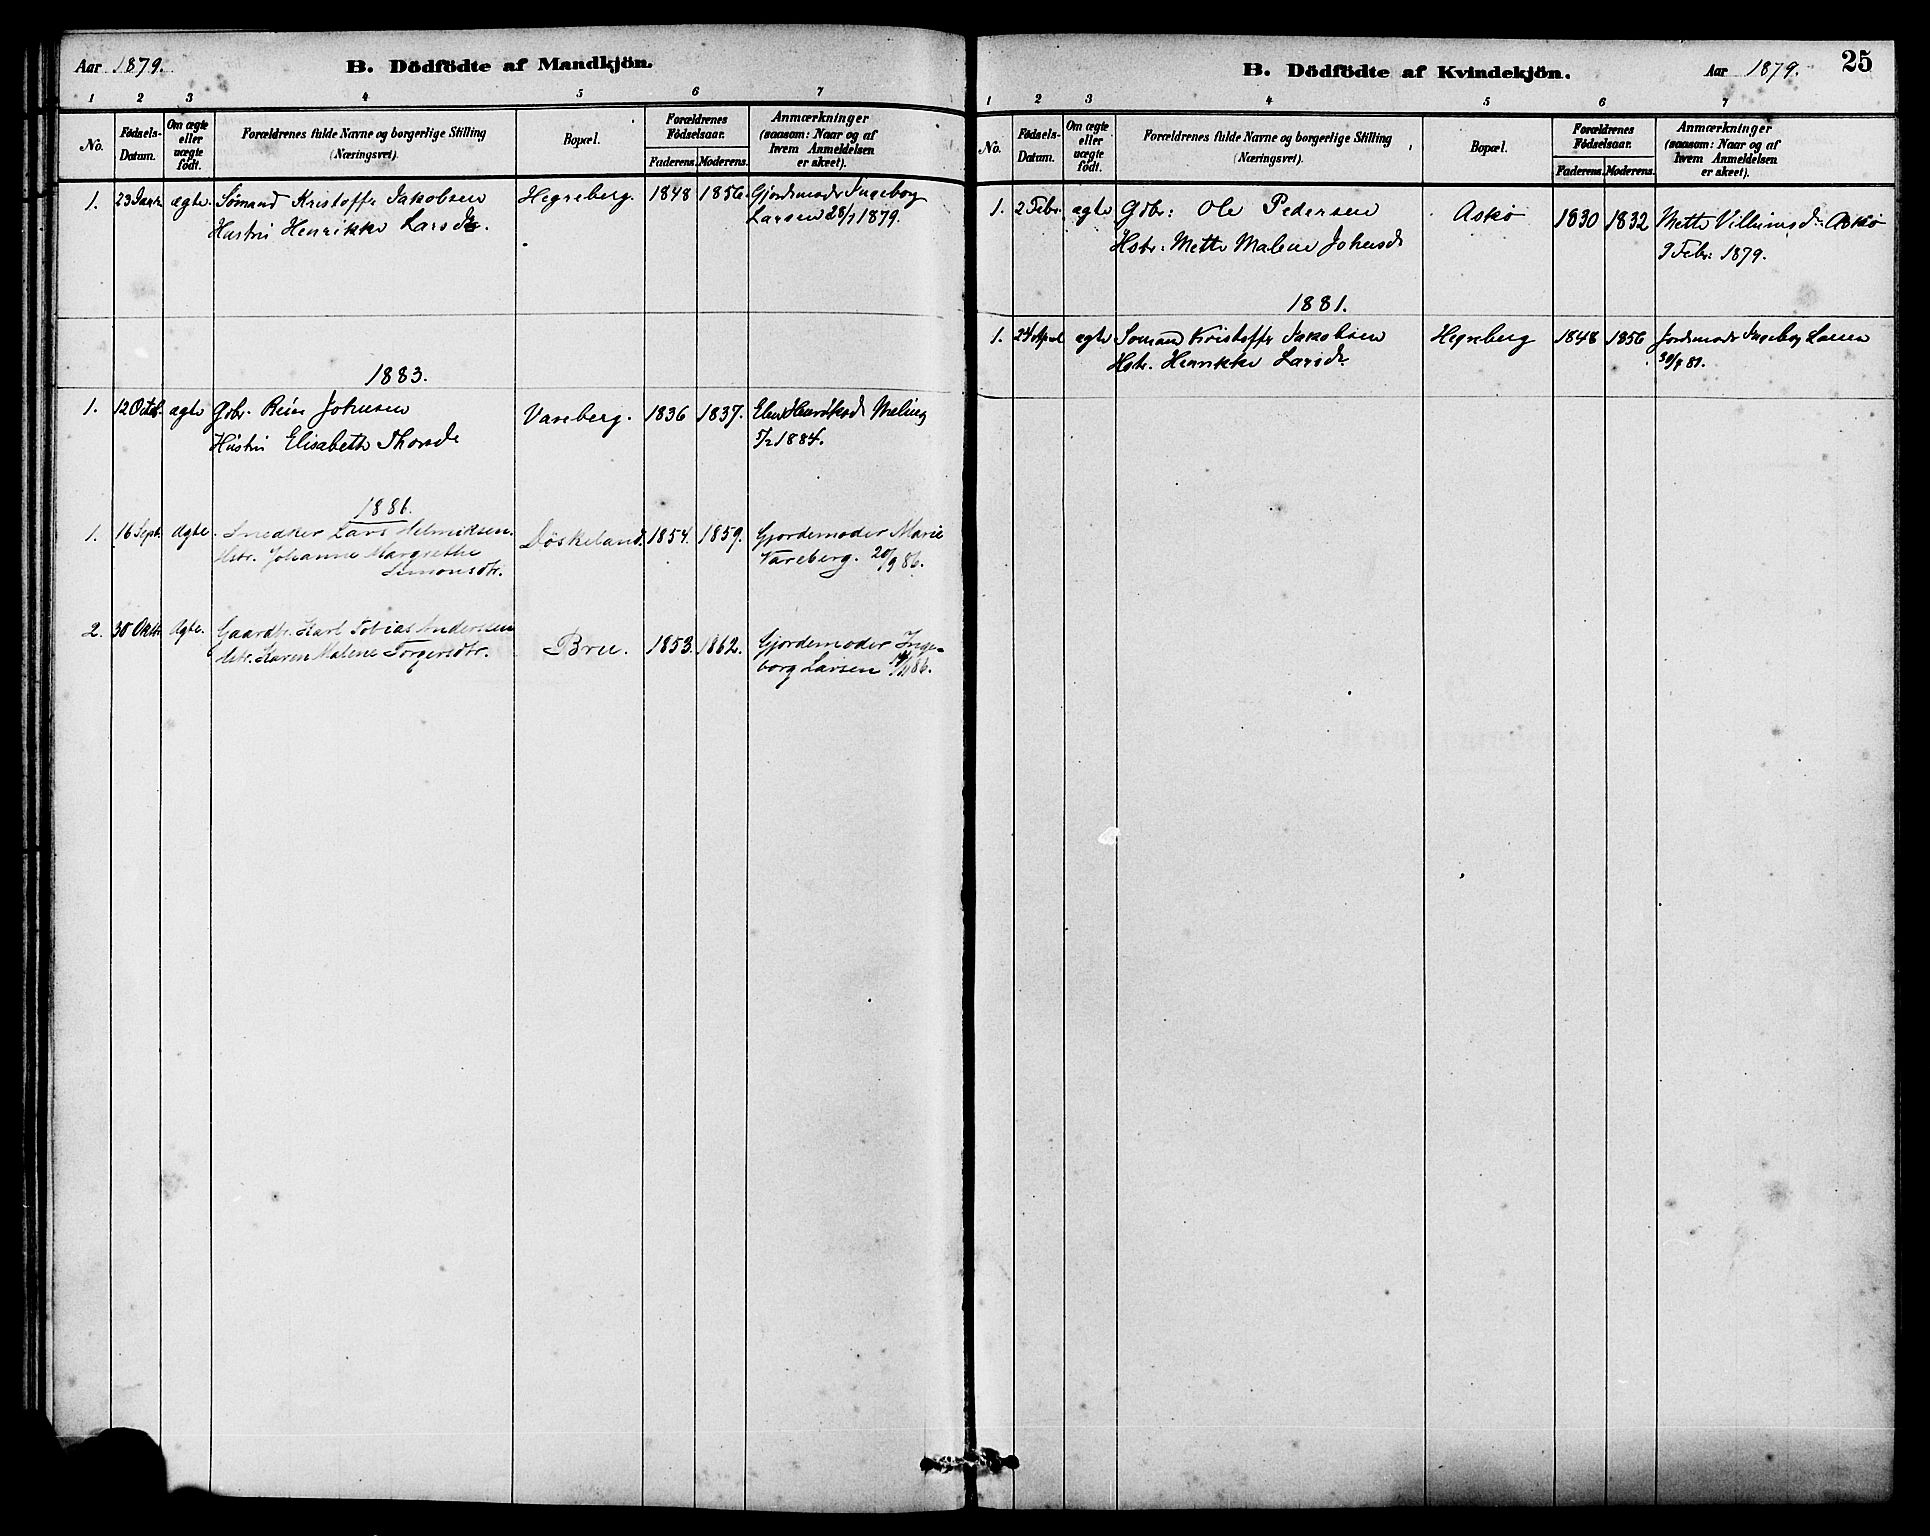 Aar 1879.
B. Dödfödte af Mandkjön.
1 2 3 4 5 6 7
No.
Fødsels-Datum.
Om ægte eller uægte født.
Forældrenes fulde Navne og borgerlige Stilling
(Næringsvei).
Bopæl.
Forældrenes Fødselsaar.
Faderens. Moderens.
Anmærkninger
(saasom: Naar og af
hvem Anmeldelsen
er skeet).
1. 23 Janr. ægte. Sømand Kristoffr Jakobsen Hegreberg. 1848 1856. Gjordemodr Ingeborg
Hustru Henrikke Larsdr. Larsen 28/1 1879.
1883.
1. 12 Octob. ægte Gdbr. Johnsen Vareberg. 1836 1837. Meling
Hustru Elisabeth Thorsdr 5/2 1884.
1886.
1. 16 Sept. Ægte. Snedker Lars Helmiksen. Døskeland. 1854. 1859. Gjordemoder Marie
Hstr. Johanne Margrethe Vareberg. 20/9 86.
Simonsdtr.
2. 30 Oktr. Ægte. Gaardbr. Karl Tobias Anderssen Bru. 1853. 1862. Gjordemoder Inge-
Hstr. Karen Malene Torgersdtr. borg Larsen 86.
B. Dödfödte af Kvindekjön.
Aar 1879.
25
1 2 3 4 5 6 7
No.
Fødsels-Datum.
Om ægte eller uægte født.
Forældrenes fulde Navne og borgerlige Stilling
(Næringsvei).
Bopæl.
Forældrenes Fødselsaar.
Faderens. Moderens.
Anmærkninger
(saasom: Naar og af
hvem Anmeldelsen
er skeet).
1. 2 Febr. ægte Gdbr: Ole Pedersen Askø 1830 1832 Mette Villumsdr. Askø
Hstr. Mette Malene Johnsdr 9 Febr. 1879.
1881.
1. 24 April ægte Sømand Kristoffr Jakobsen Hegreberg 1848 1856 Jordemodr Ingeborg Larsen
Hstr. Henrikke Larsdr. 30/4 81.